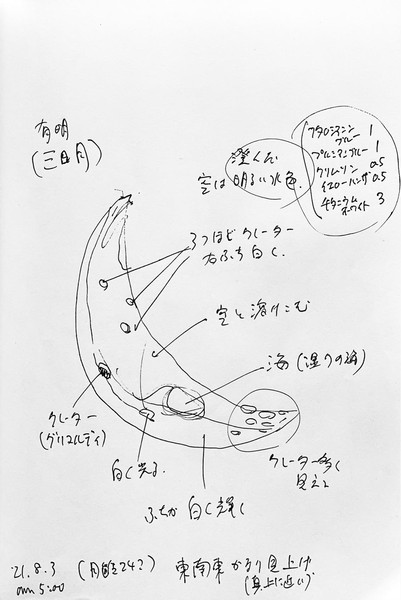 有明
(三日月)
澄んだ
空は明るい水色.
フタロシアニン
ブルー 1
プルシアンブルー 1
クリムソン 0.5
イエローハンザ 0.5
チタニウム
ホワイト 3
3つほどクレーター
右ふち白く.
空と溶けこむ
海(湿りの海)
クレーター
(グリマルディ)
白く光る.
クレーター多く
見える
ふちが白く輝く
'21.8.3 (月齢24?) 東南東かなり見上げ
am 5:00 (真上に近い)